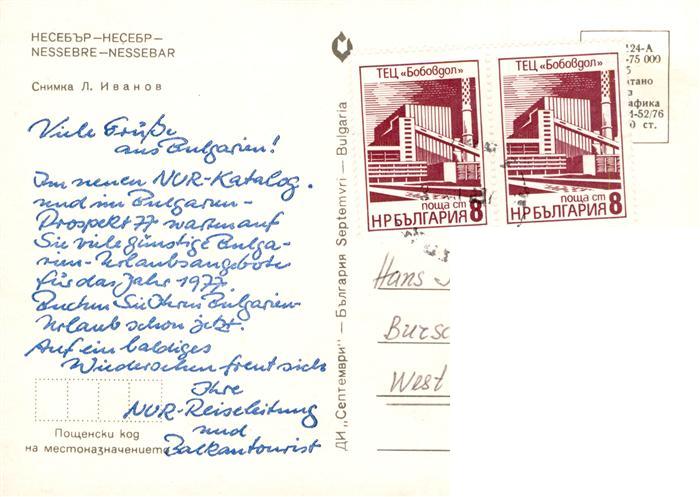 НЕСЕБЪР—НЕСЕБР—
NESSEBRE—NESSEBAR
Снимка Л. Иванов
Viele Grüße
aus Bulgarien!
Im neuen NUR-Katalog
und im Bulgarien-
Prospekt 77 warten auf
Sie viele günstige Bulga-
rien-Urlaubsangebote
für das Jahr 1977.
Buchen Sie Ihren Bulgarien-
Urlaub schon jetzt.
Auf ein baldiges
Wiedersehen freut sich
Ihre
NUR-Reiseleitung
und
Balkantourist
Пощенски код
на местоназначението
ДИ „Септември" — България Septemvri — Bulgaria
ТЕЦ «Бобовдол»
поща ст
НРБЪЛГАРИЯ 8
ТЕЦ «Бобовдол»
поща ст
НРБЪЛГАРИЯ 8
24-А
-75 000
5
тано
з
афика
1-52/76
0 ст.
Hans
Bursc
West